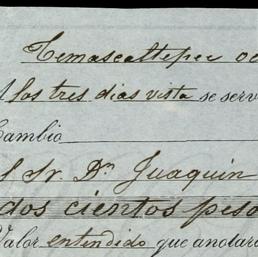 Temascaltepec oc
A los tres dias vista se serv
Cambio
l Sr. Dn Juaquin
dos cientos peso
Valor entendido que anotará